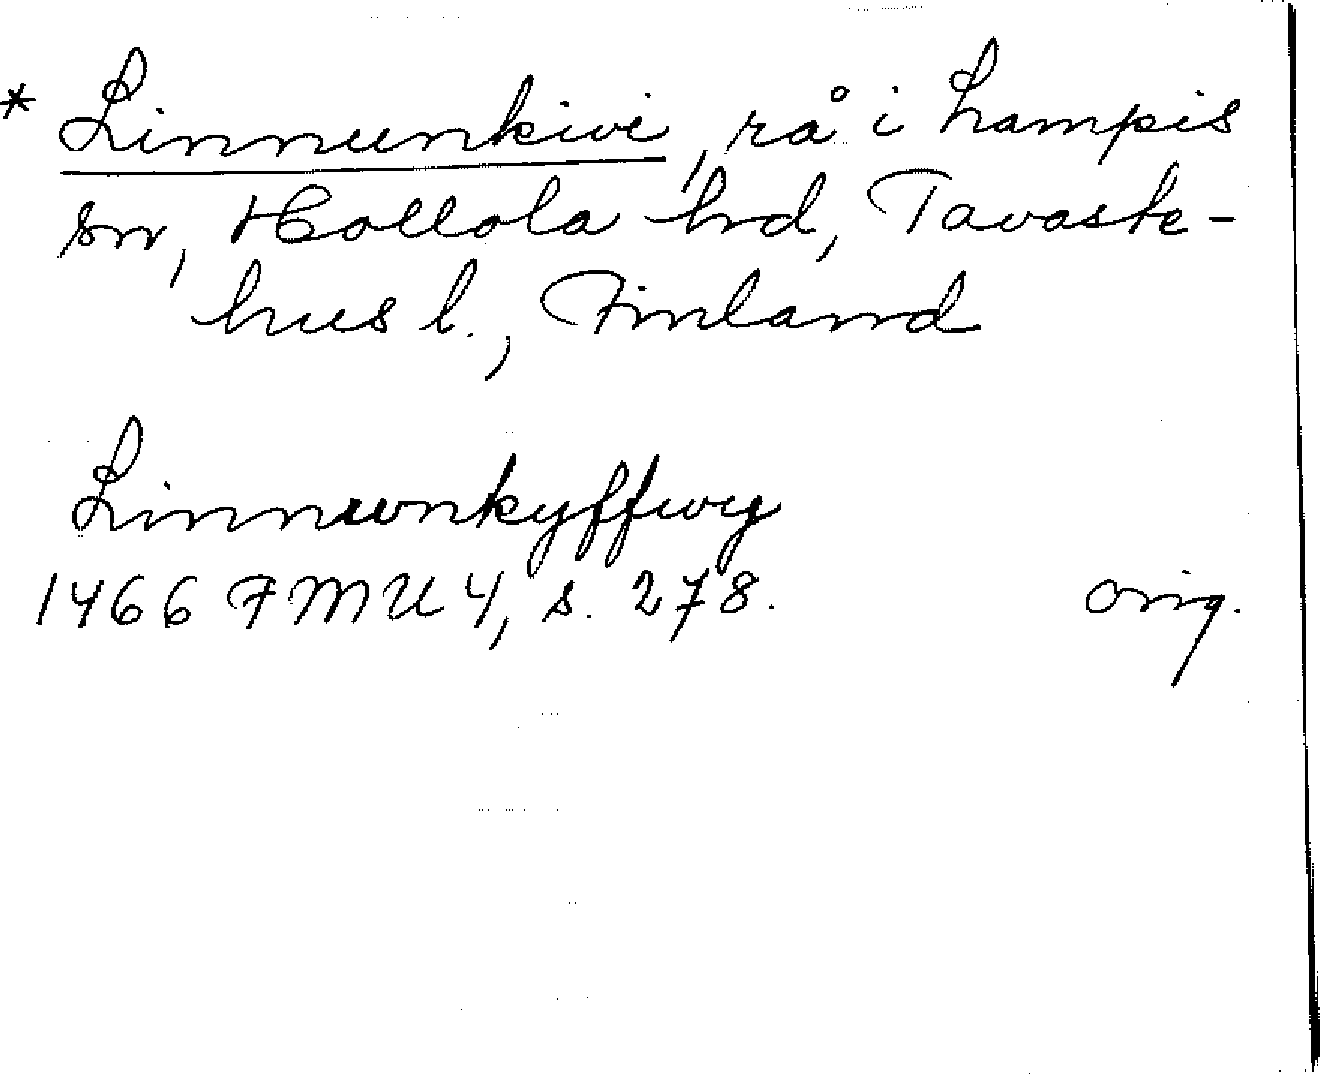 * Linnunkivi, rå i Lampis
sn, Hollola hd, Tavaste-
hus l., Finland
Linnwnkyffwy
1466 FMU 4, s. 278. orig.